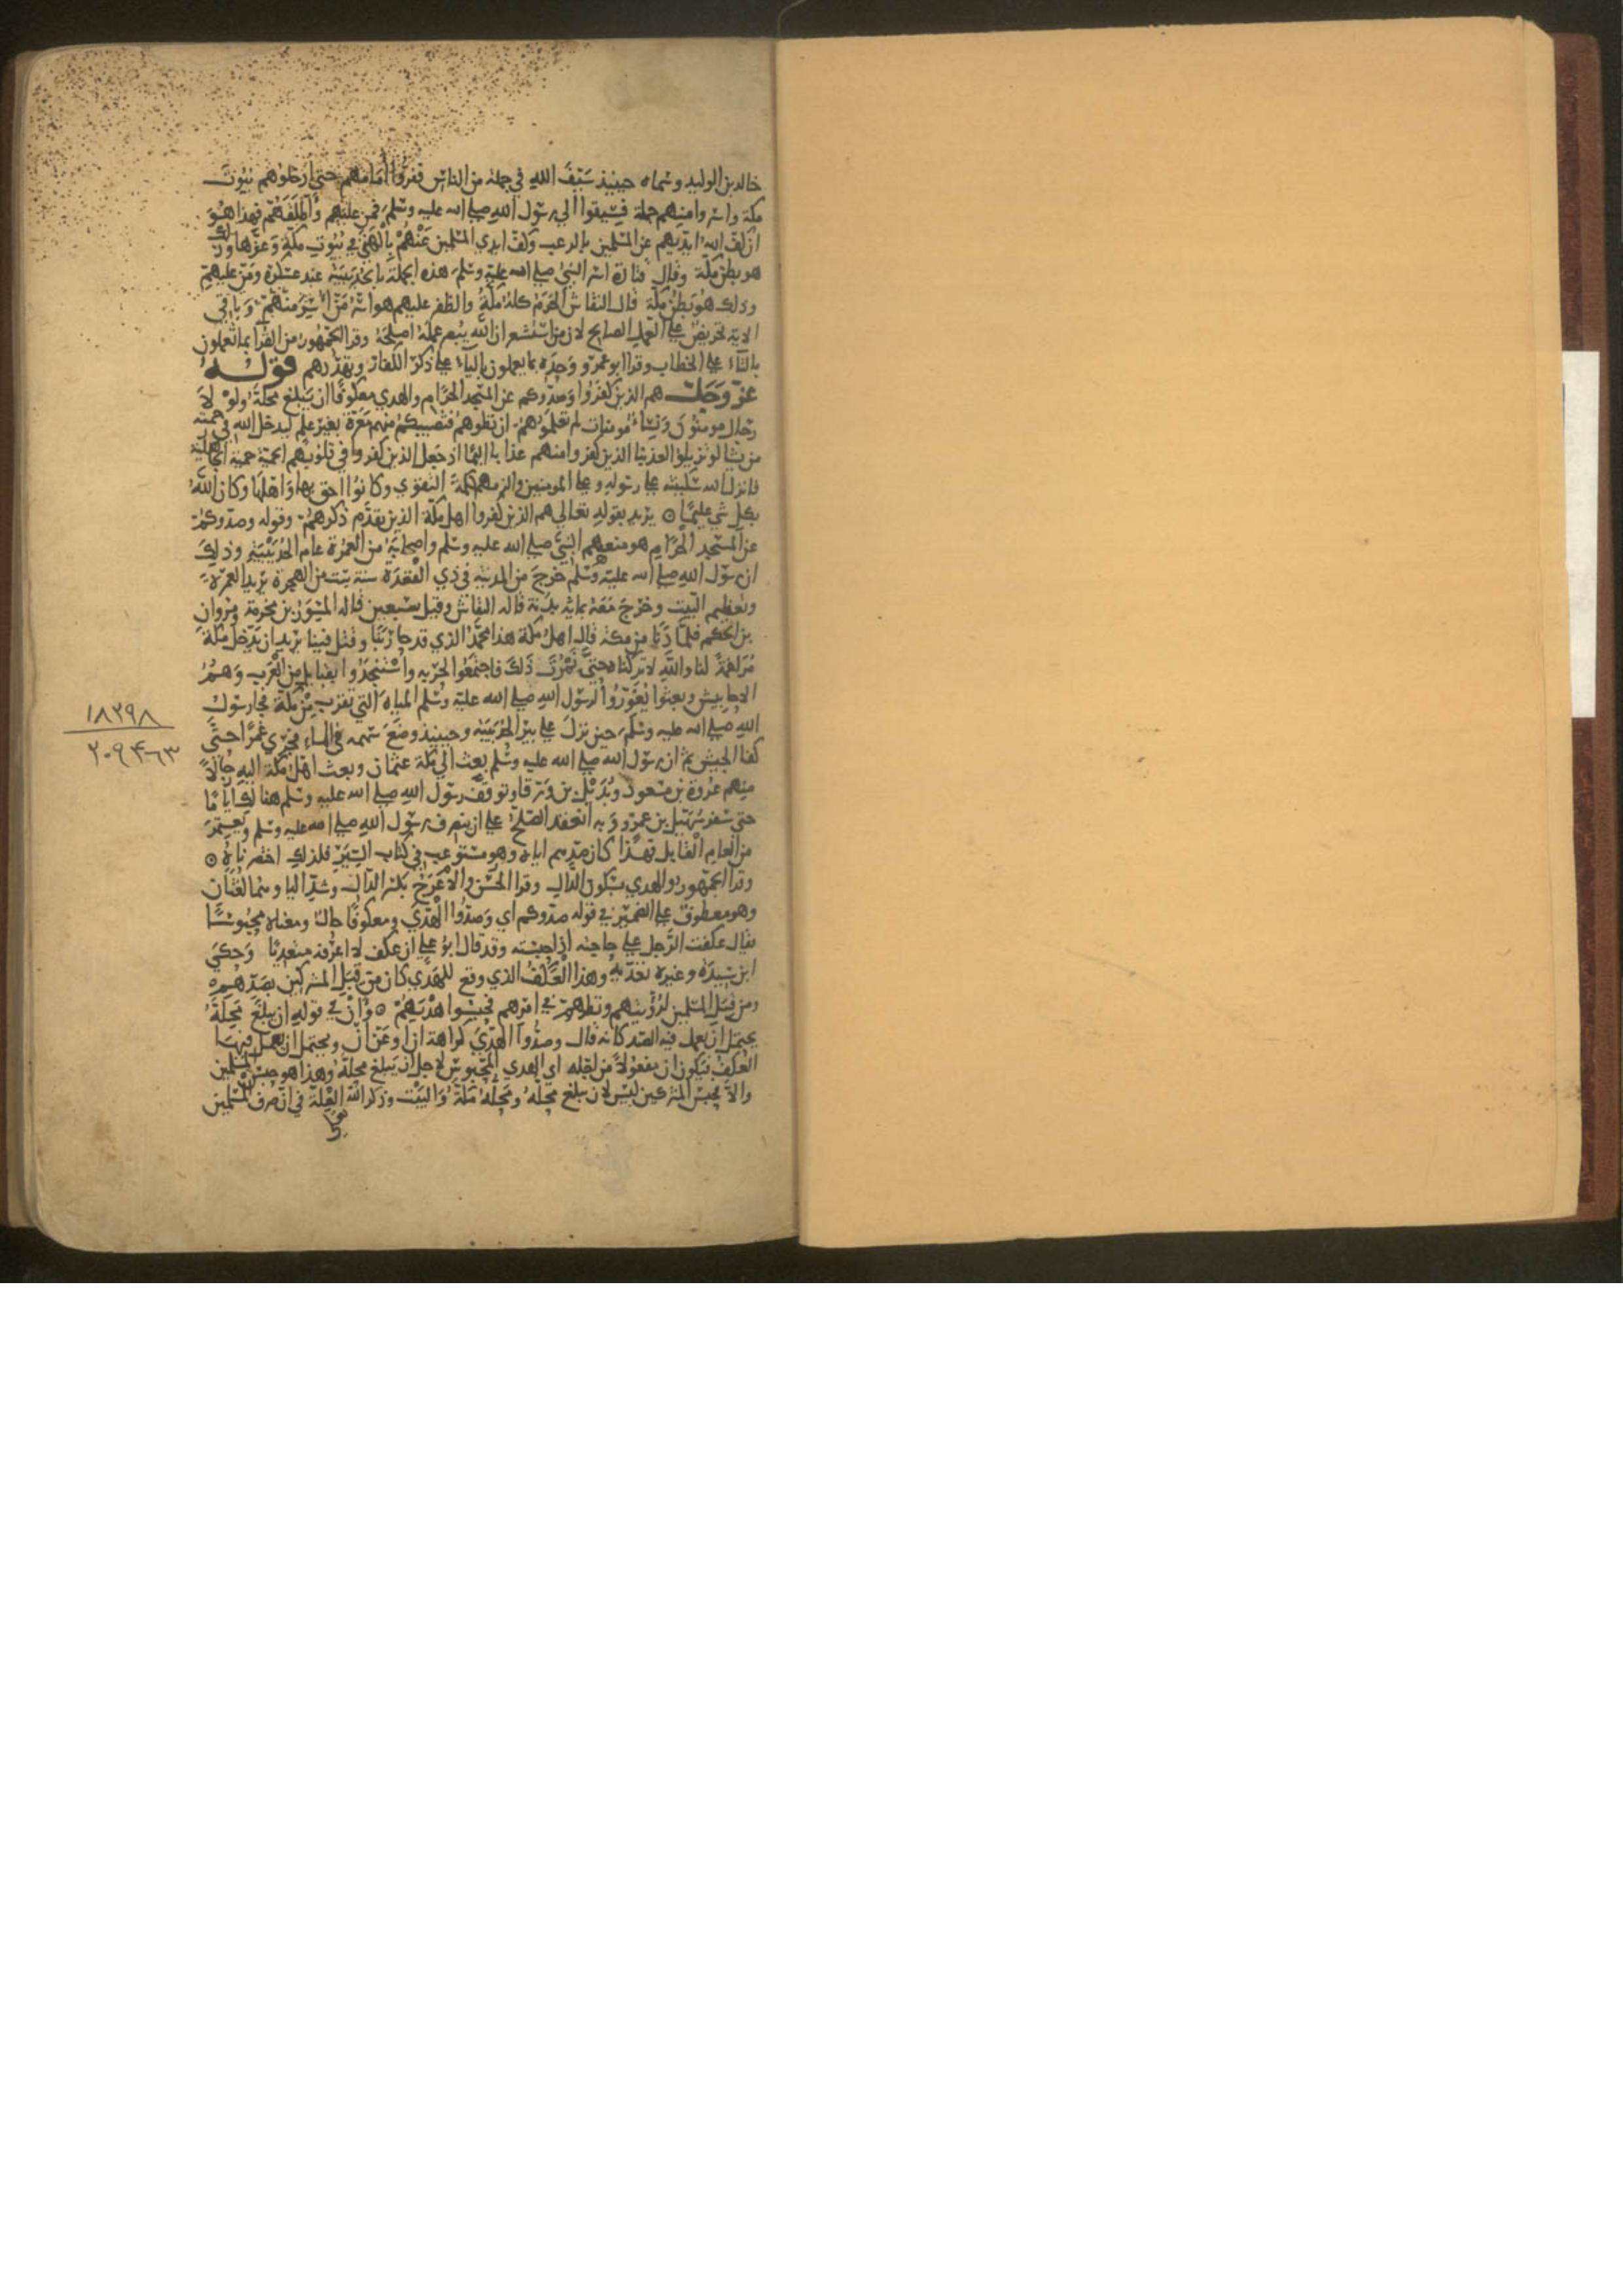 خالد بن الوليد وسماه حينيذ سَيفَ الله في جملة من الناس ففرُّوا أمامهم حتى أدخلوهم بُيُوتَ
مكة واسروا منهم جملة فسيقوا إلى رسول الله صلى الله عليه وسلم فمن عليهم وأطلقهم فهذا هُوَ
ان كف الله ايديهم عن المسلمين بالرعب وكف ايدي المسلمين عَنْهُمْ بالنهي في بُيُوت مكة وغيرها وذلك
هو بطن مكة وقال قتادة اسر النبي صلى الله عليه وسلم هذه الجملة بالحديبية عند عسكره ومَنّ عليهم
وذلك هُو بَطن مكة قال النقاش الحَرَمُ كلهُ مكةُ والظفر عليهم هو اسْرُ مَنْ اُسِرَ منهُمْ وباقي
الاية تحريضٌ على العمل الصالح لان من استشعر ان الله يبصر عمله اصلحهُ وقرا الجمهور من القرا بما تعملون
بالتاء على الخطاب وقرا ابو عمرو وحده بما يعملون بالياء على ذكر الكفار وتهدّدهم قولهُ
عزّ وجلّ هم الذين كفروا وَصدُّوكم عن المسجد الحَرَام والهدي معكوفًا ان يَبلغ محلهُ ولَوْ لاَ
رجَال مومنُونَ ونساءٌ مُومنات لم تعلمُوهُمْ ان تطوهُمْ فتُصيبكمْ منهم مَعَرّة بغير علم ليدخل الله في رحمته
من يشا لو تزيلوا لعذبنا الذين كفروا منهم عذابا اليمًا اذ جَعَل الذين كفروا في قلوبهم الحَميَّة حميّة الجاهلية
فانزل الله سَكينته على رسوله وعلى المومنين والزمهم كلمة التقوَى وكانُوا احَق بها واَهلهَا وكان اللهُ
بكل شي عليمًا ه يريد بقوله تعالى هم الذين كفروا اهل مكة الذين تقدّم ذكرهُمْ وقوله وصدوكمْ
عن المسْجد الحرَام هو منعهم النبي صلى الله عليه وسلم واصحابهُ من العُمْرَة عام الحُدَيْبيَة وذلك
ان رسول الله صلى الله عليه وسلم خَرجَ من المدينة في ذي القعدَة سنة ست من الهجرة يريد العمرة
وتعظيم البَيت وخَرَجَ مَعَهُ بماية بدنة قاله النقاش وقيل بسَبعين قاله المِسْوَر بن مخرمة ومروان
بن الحكم فلمّا دَنا من مكة قال اهل مكة هذا محمَّدٌ الذي قد حَارَبَنَا وقتل فينا يُريد ان يَدْخل مكة
مُرَاغمَةً لنا واللهِ لا تركناه حَتى نَمُوتَ دُونَ ذَلكَ فاجتمعُوا لحربه واسْتنجدُوا بقبايل من العَرب وَهُمُ
الاحابيش وبعثوا يُغَوّرُوا لرسول الله صلى الله عليه وسلم المياهَ التي تقربُ منْ مكة فجا رسُولُ
الله صلى الله عليه وسلم حين نزلَ على بير الحُدَيبيَة وحينيذ وضعَ سَهمه في الماء فجَرَى غَمْرًا حتى
كفا الجيش ثم ان رسول الله صلى الله عليه وسلم بعث الى مكة عثمان وبعث اهل مكة اليه رجَالاً
منهم عروة بن مسعود وبُدَيْل بن وَرْقا وتوَقفَ رسول الله صلى الله عليه وسلم هنالك ايّامًا
حتى سَفر سُهَيْل بن عمرو وبه انعقد الصّلحُ على ان ينصرف رسول الله صلى الله عليه وسلم ويعتمرَ
من العام القابل فهذا كان صَدهم اياه وهو مستوعب في كتاب السّيَر فلذلك اختصرناهُ ه
وقرا الجمهور والهدْي بسكون الدّالِ وقرا الحسَن والاعرَجُ بكسر الدّال وشدّ اليا وهما لغتان
وهو معطوفٌ على الضمير في قوله صدوكم اي وصَدُّوا الهَدْيَ ومعكوفًا حَال ومعناه محبُوسًا
يقال عكفت الرجل على حاجته اذا حبسته وقد قال ابو علي ان عكف لا اعرفه متعديًا وَحكى
ابن سيدَه وغيره تعدّيه وهذا العَكْفُ الذي وقع للهدي كان من قبَل المشركين بصَدّهم
ومن قبَل المسلمين لرُؤيَتهم ونظرهم في امرهم فحبسوا هَدْيَهُمْ ه وانْ في قوله ان يبلغَ مَحِلَهُ
يحتمل ان يعمل فيه الصّد كانه قال وصدُّوا الهدْيَ كراهة ان او عن ان ويحتمل ان يعمل فيها
العَكفُ فيكون ان مفعُولاً من اجله اي الهدي المحبُوسَ لاجل ان يَبلغ محله وهذا هو حبْسُ المسلمين
والا فحبسُ المشركين ليْسَ لان يبلغ محِلهُ ومحِلهُ مَكةُ والبَيْت وذكر الله العِلّة في ان صَرف المسلمين
١٨٣٩٨
٢٠٩٤٦٣